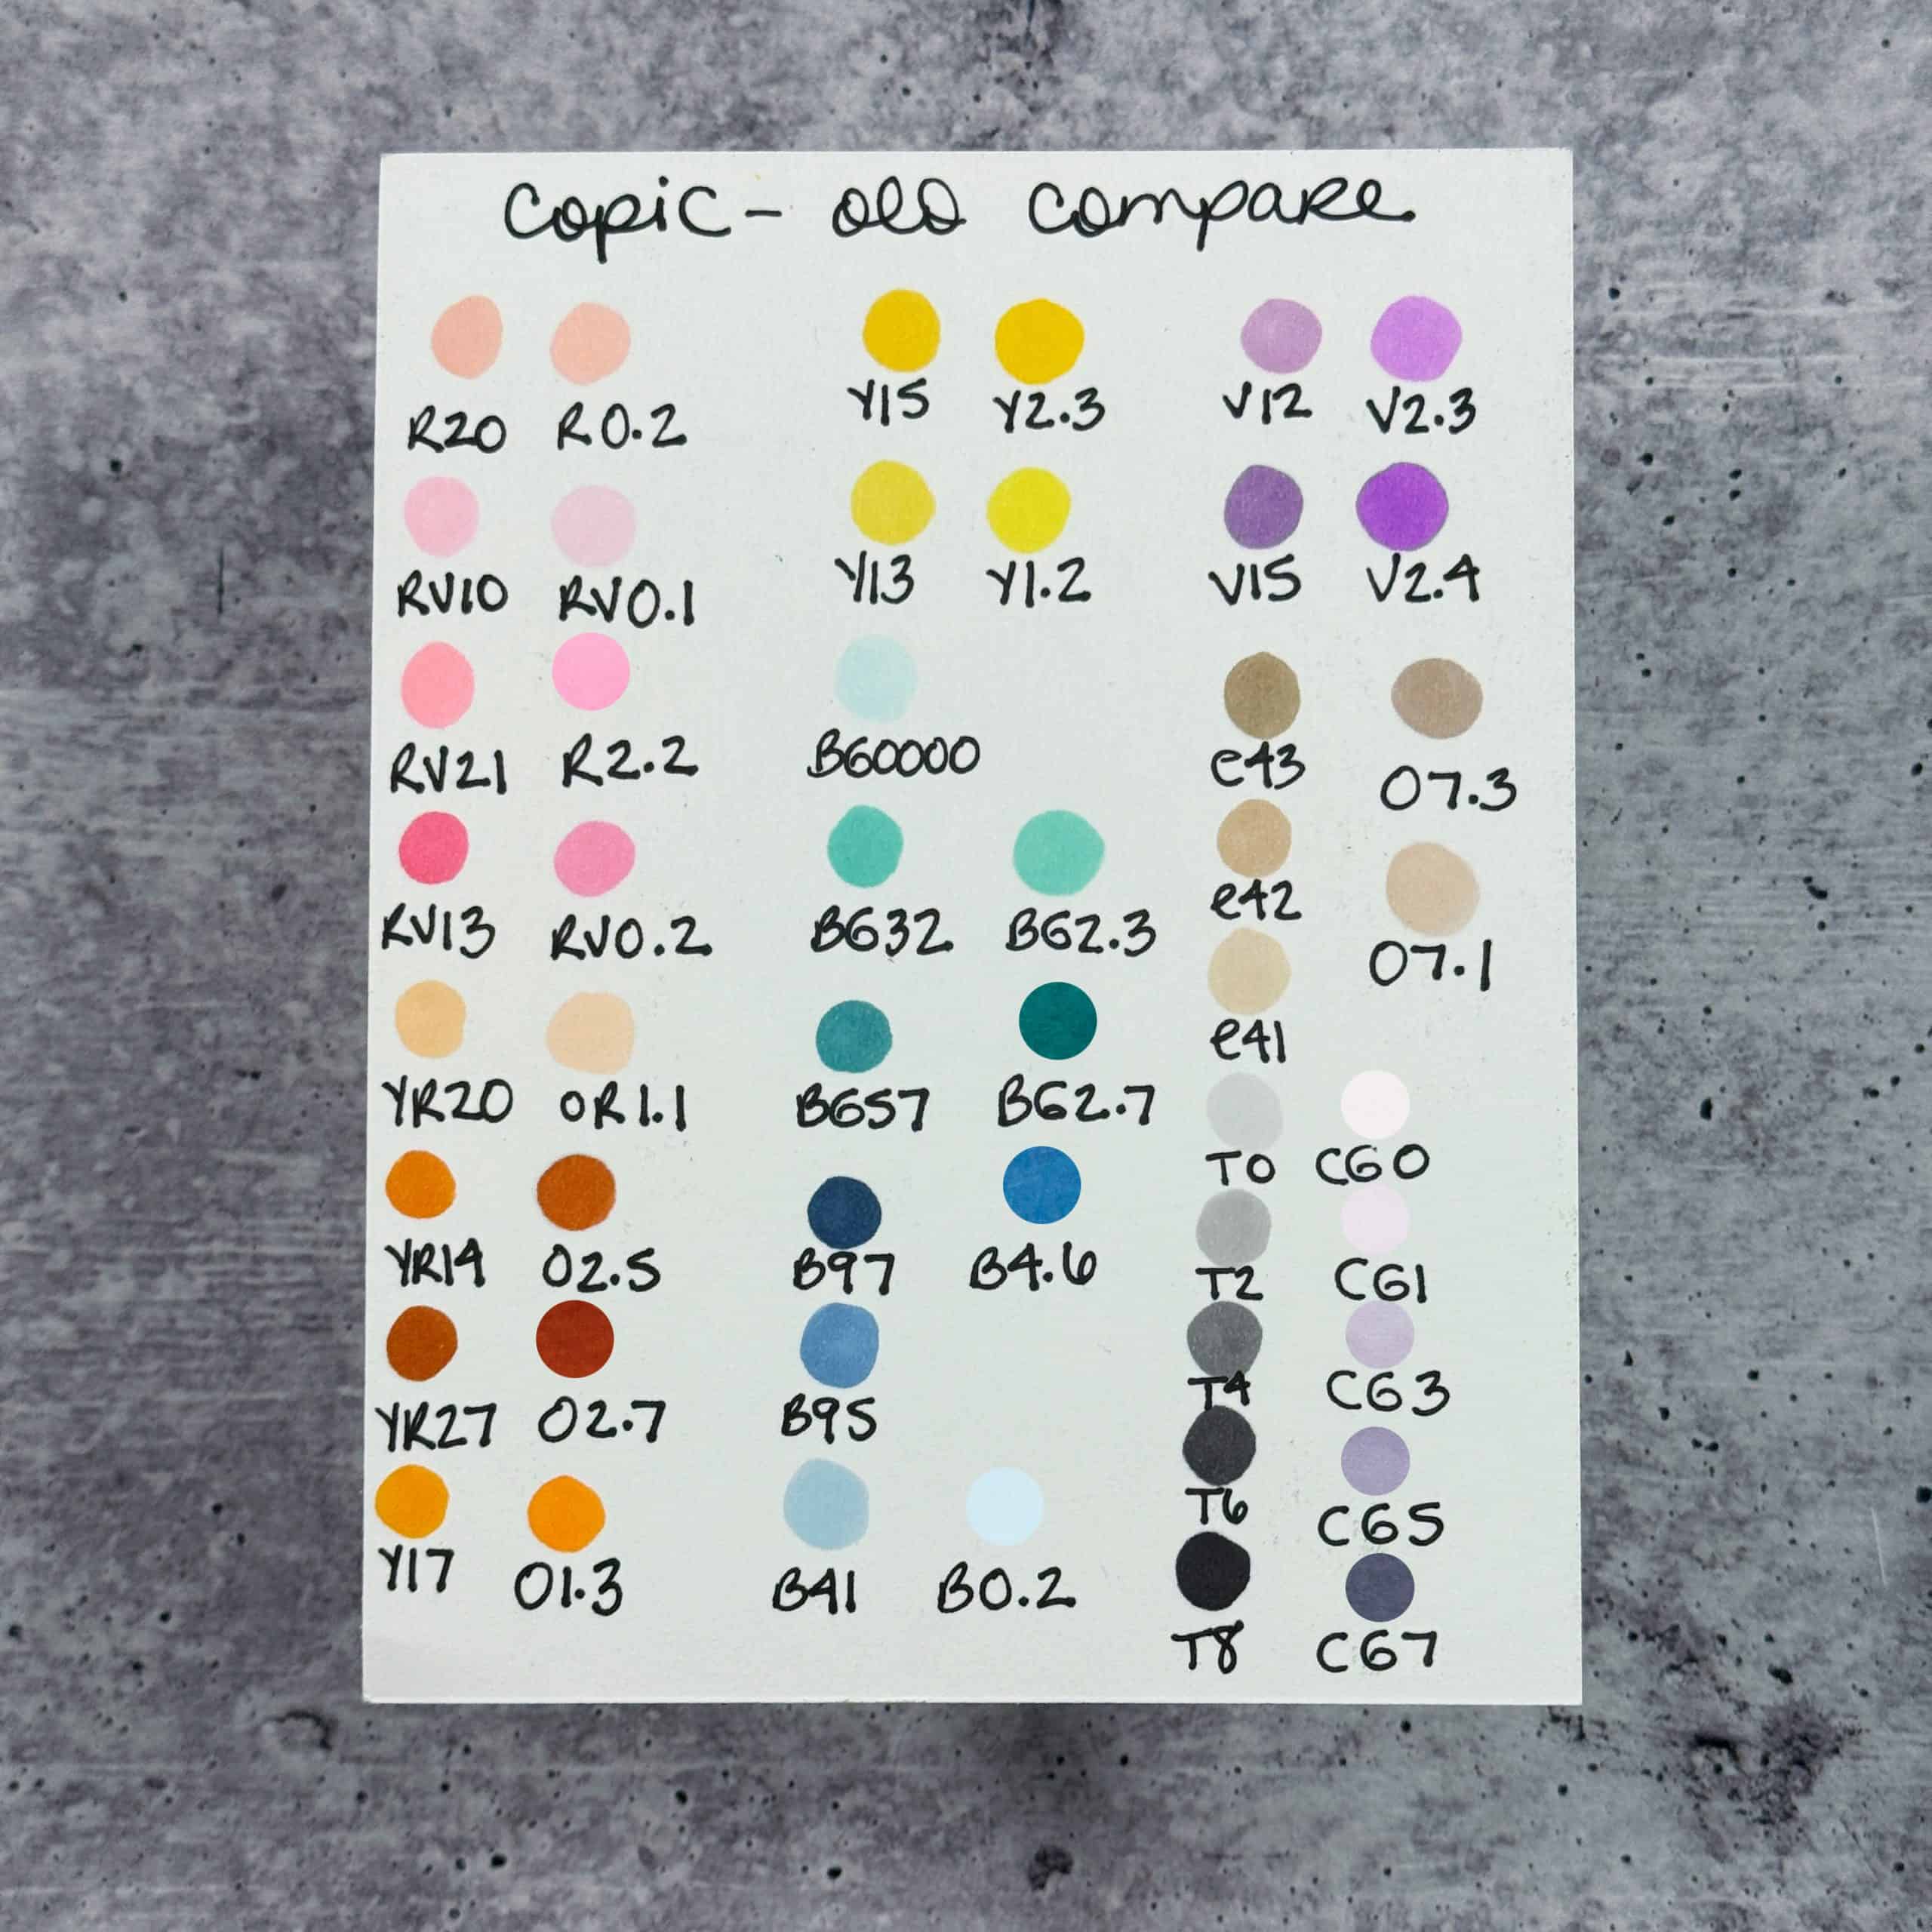 Copic - OLO Compare
R20 R0.2
RV10 RV0.1
RV21 R2.2
RV13 RV0.2
YR20 OR1.1
YR14 O2.5
YR27 O2.7
Y17 O1.3
Y15 Y2.3
Y13 Y1.2
BG0000
BG32 BG2.3
BG57 BG2.7
B97 B4.6
B95
B41 B0.2
V12 V2.3
V15 V2.4
e43 O7.3
e42 O7.1
e41
T0 CG0
T2 CG1
T4 CG3
T6 CG5
T8 CG7